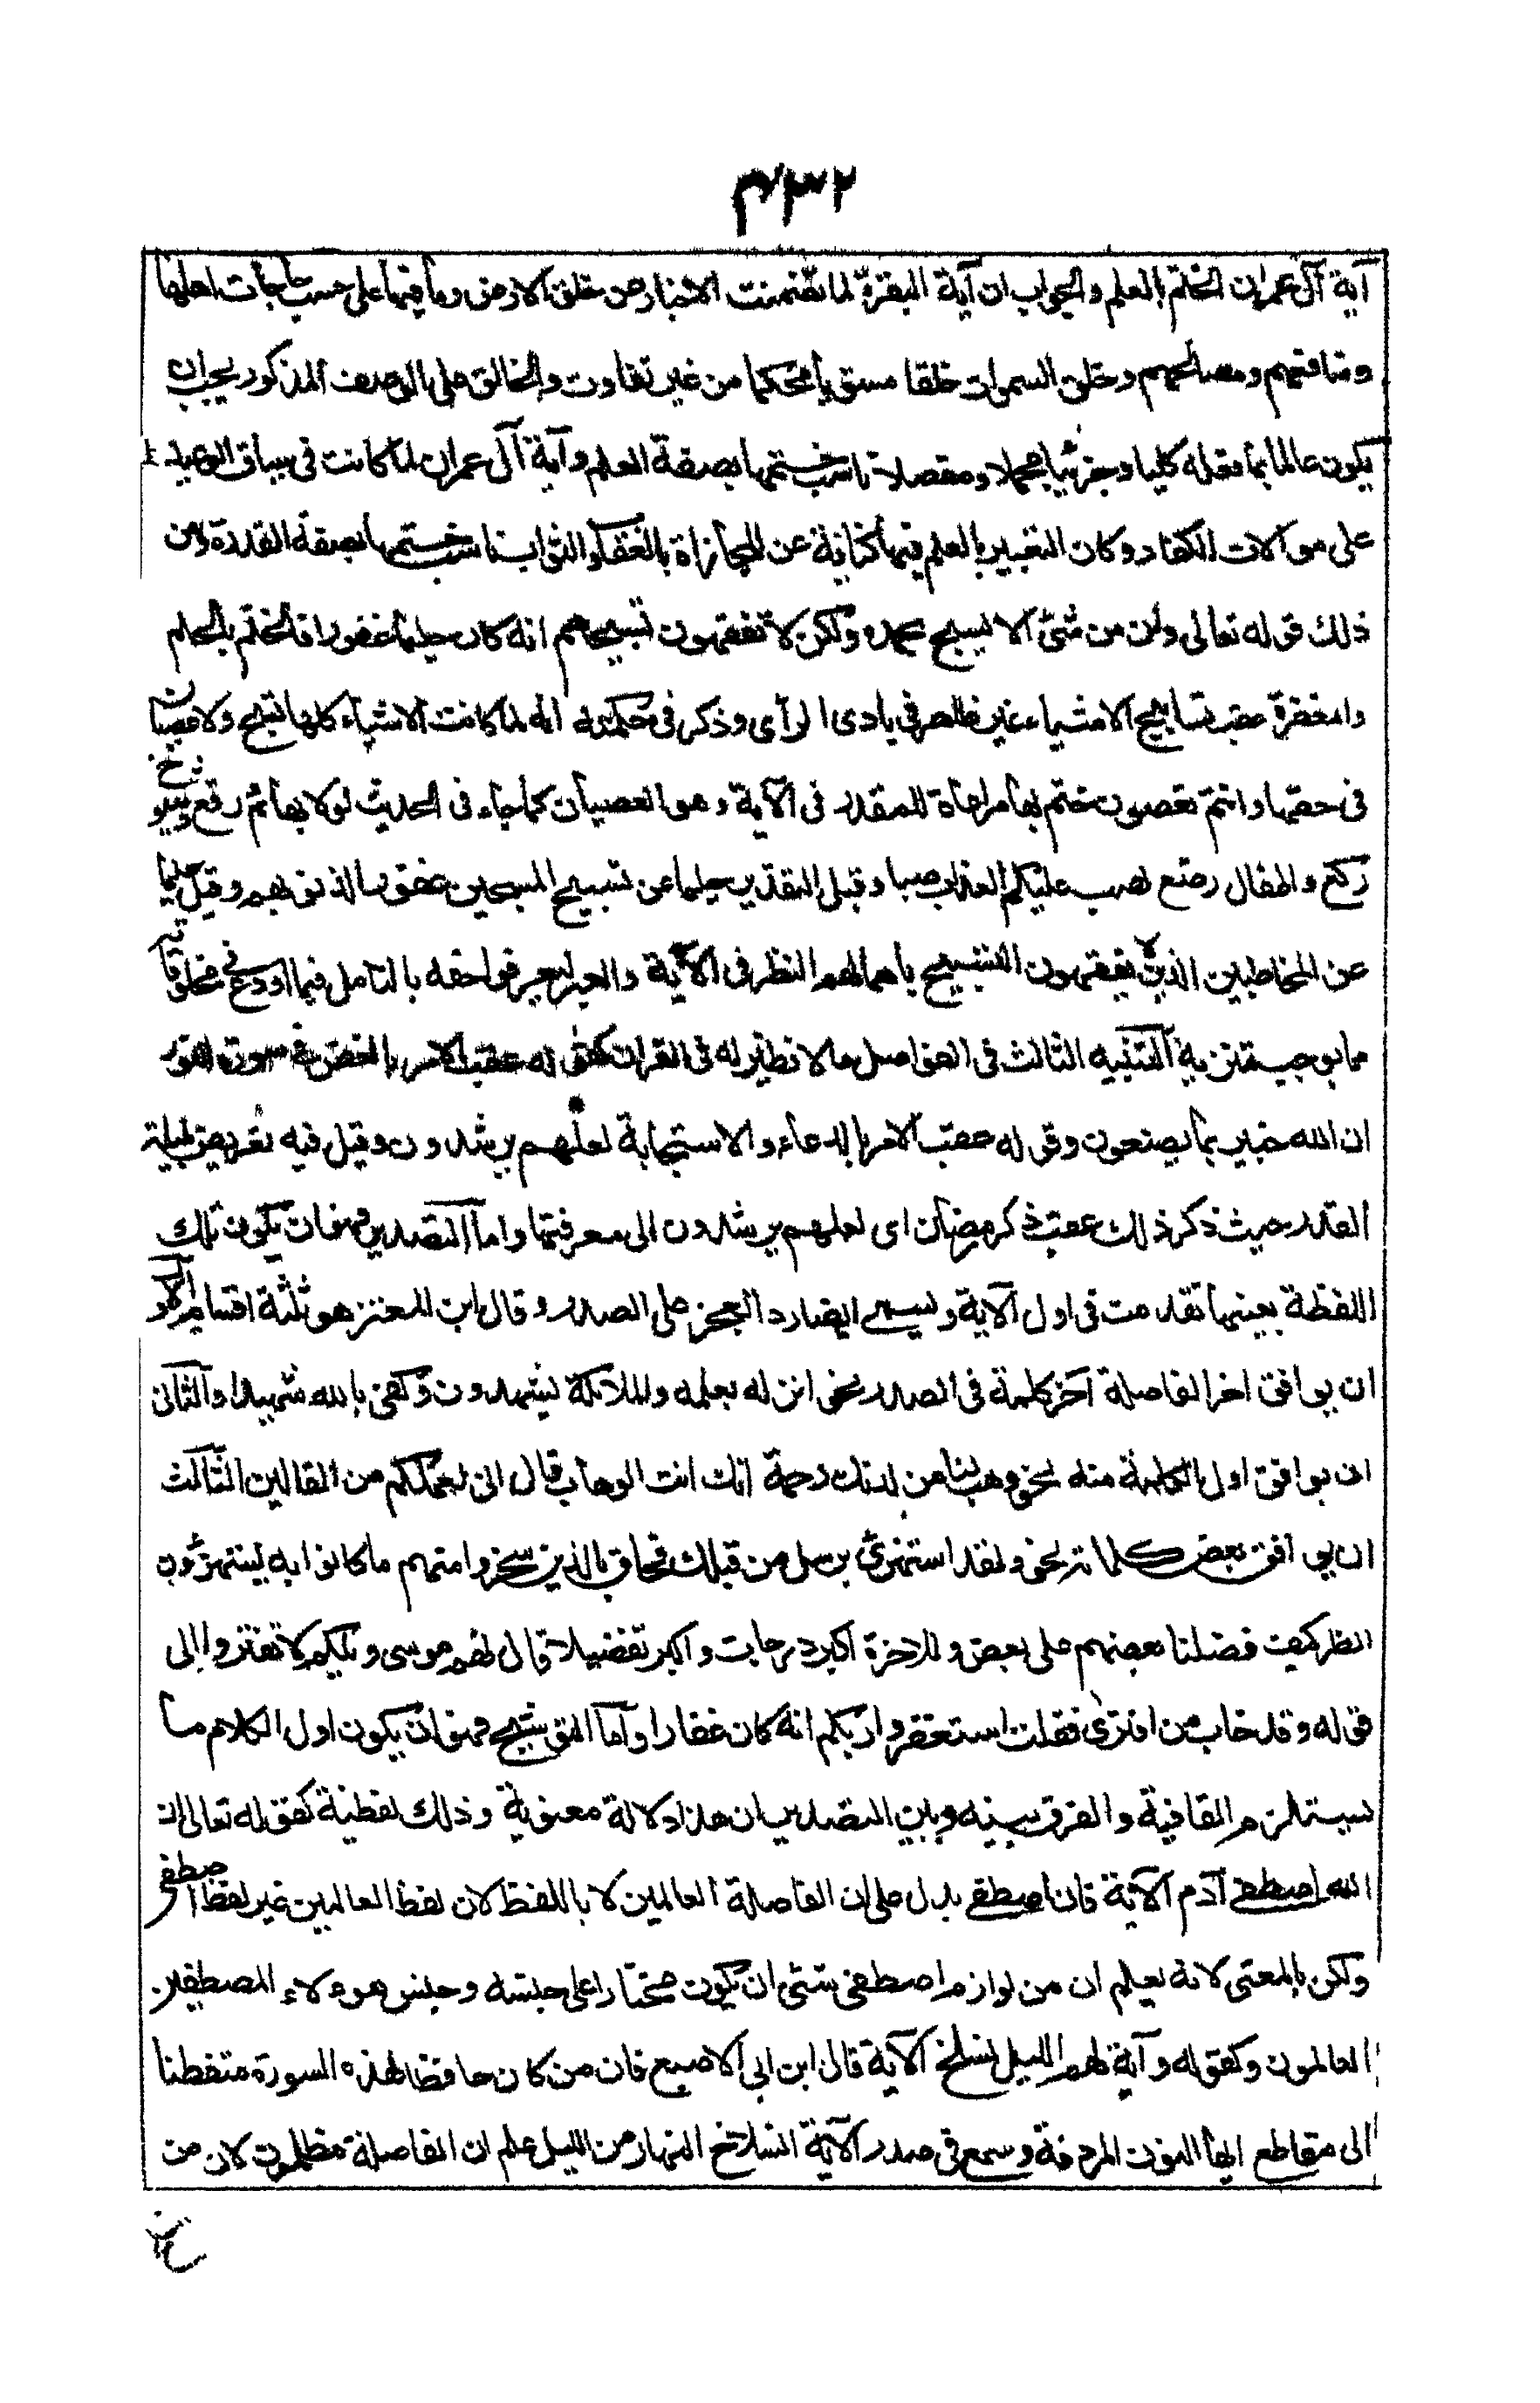 ٢٣٤
آية آل عمران الختم بالعلم والجواب ان آية البقرة لما تضمنت الاخبار عن خلق الارض وما فيها على حسب حاجات اهلها
ومنافعهم ومصالحهم وخلق السموات خلقا مستويا محكما من غير تفاوت والخالق على الوصف المذكور يجب ان
يكون عالما بما فعله كليا وجزئيا مجملا ومفصلا ناسب ختمها بصفة العلم وآية آل عمران لما كانت في سياق الوعيد
على موالات الكفار وكان التعبير بالعلم فيها كناية عن المجازاة بالعقاب والثواب ناسب ختمها بصفة القدرة ومن
ذلك قوله تعالى وان من شئ الا يسبح بحمده ولكن لا تفقهون تسبيحهم انه كان حليما غفورا فالختم بالحلم
والمغفرة عقب تسابيح الاشياء غير ظاهر في بادى الرأى وذكر في حكمته انه لما كانت الاشياء كلها تسبح ولا عصيان
في حقها وانتم تعصون ختم بها مراعاة للمقدر في الآية وهو العصيان كما جاء في الحديث لولا بهائم رتع وشيوخ
ركع واطفال رضع لصب عليكم العذاب صبا وقيل التقدير حليما عن تسبيح المسبحين غفورا لذنوبهم وقيل حليما
عن المخاطبين الذين لا يفقهون التسبيح باهمالهم النظر في الآية والعبر ليعرفوا حقه بالتامل فيما اودع في مخلوقاته
مما يوجب تنزيهه التنبيه الثالث في الفواصل ما لا نظير له في القرآن كقوله عقب الامر بالغض في سورة النور
ان الله خبير بما يصنعون وقوله عقب الامر بالدعاء والاستجابة لعلهم يرشدون وقيل فيه تعريض بليلة
القدر حيث ذكر ذلك عقب ذكر رمضان اى لعلهم يرشدون الى معرفتها واما التصدير فهو ان يكون تلك
اللفظة بعينها تقدمت في اول الآية ويسمى ايضا رد العجز على الصدر وقال ابن المعتز هو ثلثة اقسام الاول
ان يوافق اخر الفاصلة آخر كلمة في الصدر نحو انزله بعلمه والملائكة يشهدون وكفى بالله شهيدا والثانى
ان يوافق اول الكلمة منه نحو وهب لنا من لدنك رحمة انك انت الوهاب قال انى لعملكم من القالين الثالث
ان يوافق بعض كلماته نحو ولقد استهزئ برسل من قبلك فحاق بالذين سخروا منهم ما كانوا به يستهزؤن
انظر كيف فضلنا بعضهم على بعض وللاخرة اكبر درجات واكبر تفضيلا قال لهم موسى ويلكم لا تفتروا الى
قوله وقد خاب من افترى فقلت استغفروا ربكم انه كان غفارا واما التوشيح فهو ان يكون اول الكلام ما
يستلزم القافية والفرق بينه وبين التصدير ان هذا دلالة معنوية وذلك لفظية كقوله تعالى ان
الله اصطفى آدم الآية فان اصطفى يدل على ان الفاصلة العالمين لا باللفظ لان لفظ العالمين غير لفظ اصطفى
ولكن بالمعنى لانه يعلم ان من لوازم اصطفى شئ ان يكون مختارا على جنسه وجنس هؤلاء المصطفين
العالمون وكقوله وآية لهم الليل نسلخ الآية قال ابن ابى الاصبع فان من كان حافظا لهذه السورة متفطنا
الى مقاطع ايها النون المردفة وسمع في صدر الآية انسلاخ النهار من الليل علم ان الفاصلة مظلمون لان من